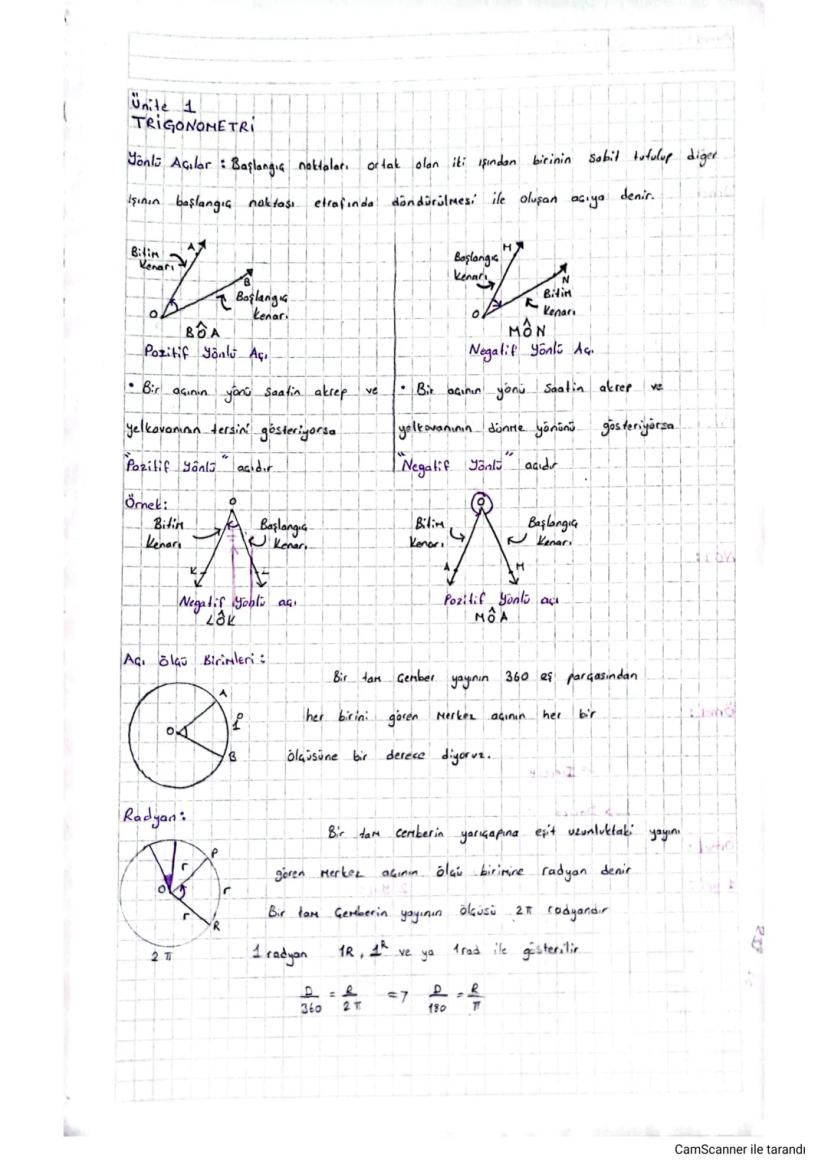 Ünite 1
TRİGONOMETRİ
Yönlü Açılar : Başlangıç noktaları ortak olan iki ışından birinin sabit tutulup diğer
ışının başlangıç noktası etrafında döndürülmesi ile oluşan açıya denir.
Bitim Kenarı
A
B
Başlangıç Kenarı
O
BÔA
Pozitif Yönlü Açı
Başlangıç Kenarı
M
N
Bitim Kenarı
O
MÔN
Negatif Yönlü Açı
• Bir açının yönü saatin akrep ve
yelkovanının tersini gösteriyorsa
"Pozitif Yönlü" açıdır
• Bir açının yönü saatin akrep ve
yelkovanının dönme yönünü gösteriyorsa
"Negatif Yönlü" açıdır
Örnek:
O
Bitim Kenarı
Başlangıç Kenarı
K
L
Negatif Yönlü açı
LÔK
O
Bitim Kenarı
Başlangıç Kenarı
A
M
Pozitif Yönlü açı
MÔA
Açı ölçü Birimleri :
A
O
1°
B
Bir tam Çember yayının 360 eş parçasından
her birini gören Merkez açının her bir
ölçüsüne bir derece diyoruz.
Radyan :
P
r
O
r
r
R
2π
Bir tam Çemberin yarıçapına eşit uzunluktaki yayını
gören merkez açının ölçü birimine radyan denir
Bir tam Çemberin yayının ölçüsü 2π radyandır
1 radyan 1R, 1ᴿ ve ya 1rad ile gösterilir
D/360 = R/2π => D/180 = R/π
CamScanner ile tarandı